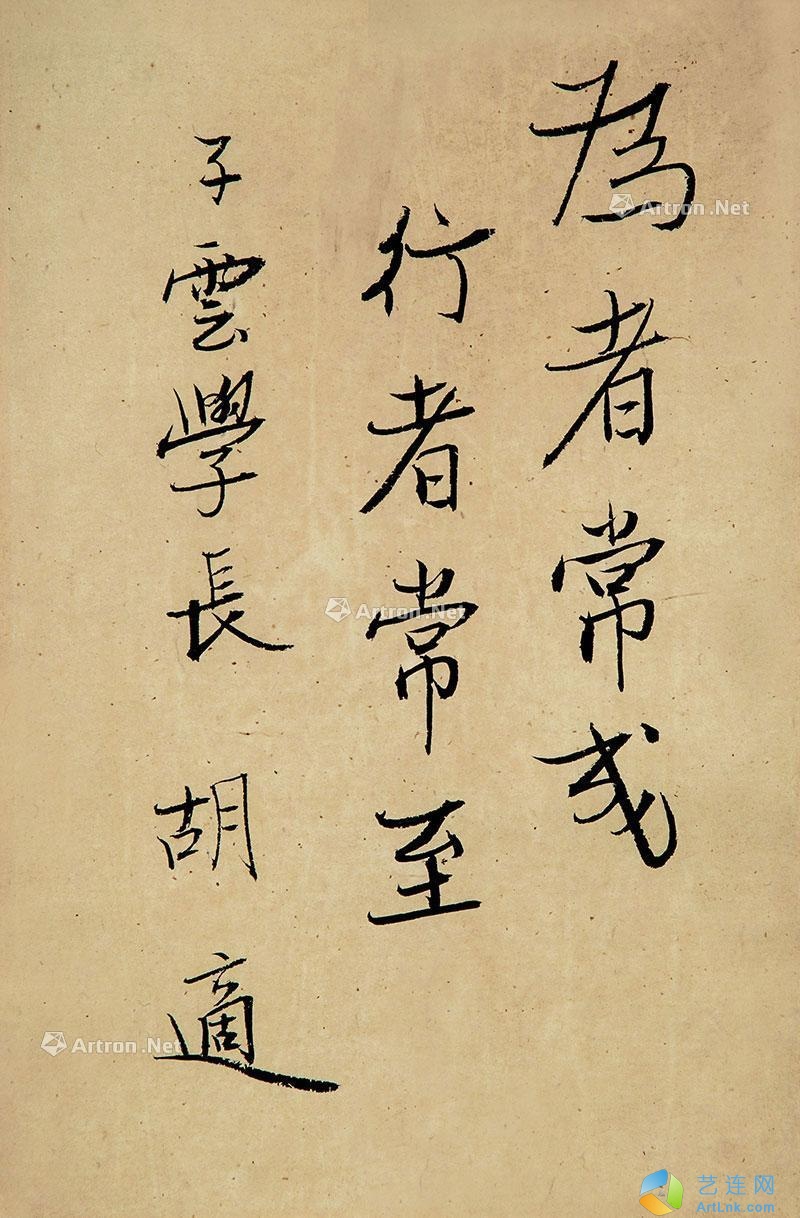 為者常成
行者常至
子雲學長 胡適
Artron.Net
Artron.Net
Artron.Net
艺连网
ArtLnk.com